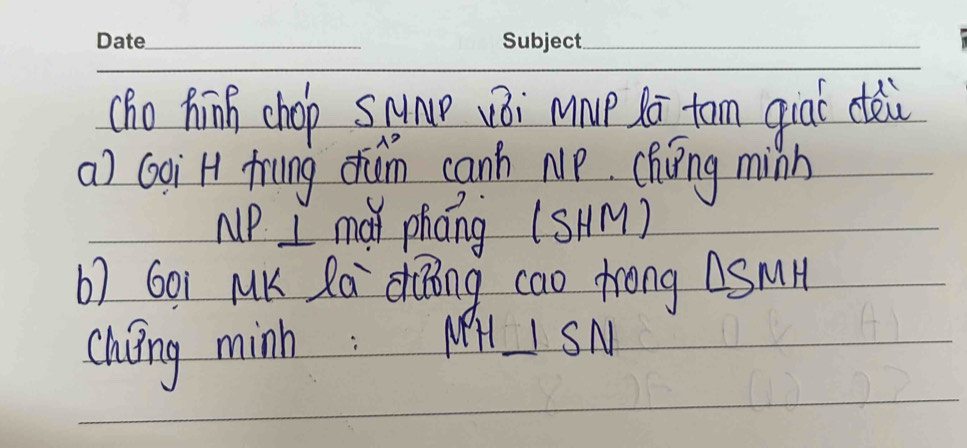 Date Subject
Cho hình chóp SMNP với MNP là tam giác đều
a) Gọi H trung điểm cạnh NP. Chứng minh
NP ⊥ mặt phẳng (SHM)
b) Gọi MK là đường cao trong ΔSMH
Chứng minh : MH ⊥ SN